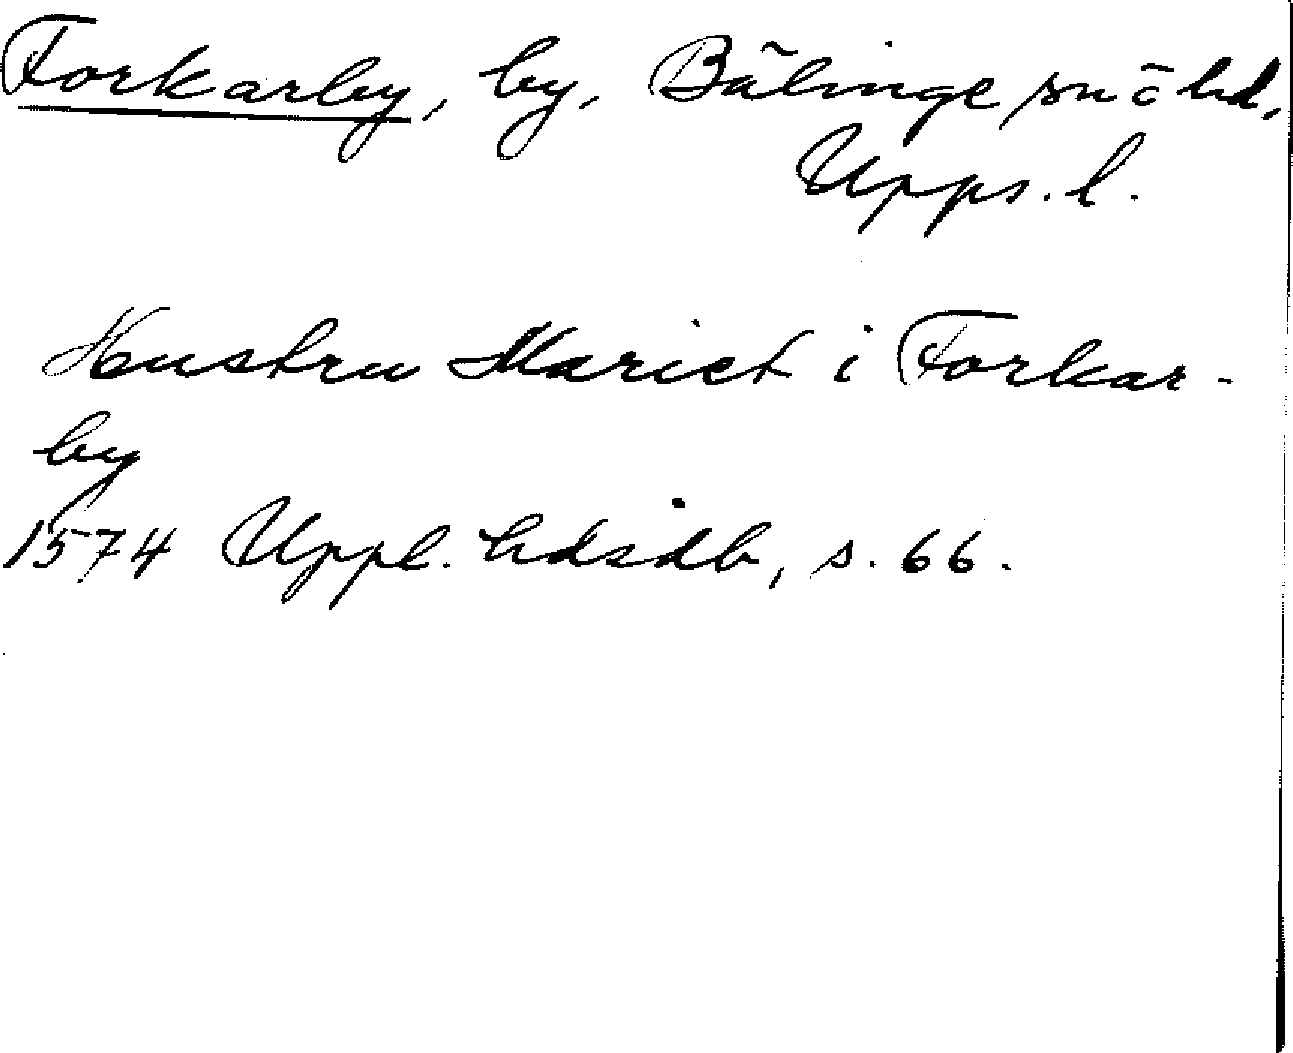 Forkarby, by, Bälinge sn ō hd,
Upps. l.
Hustru Mariet i Forkar-
by
1574 Uppl. hdsdb, s. 66.